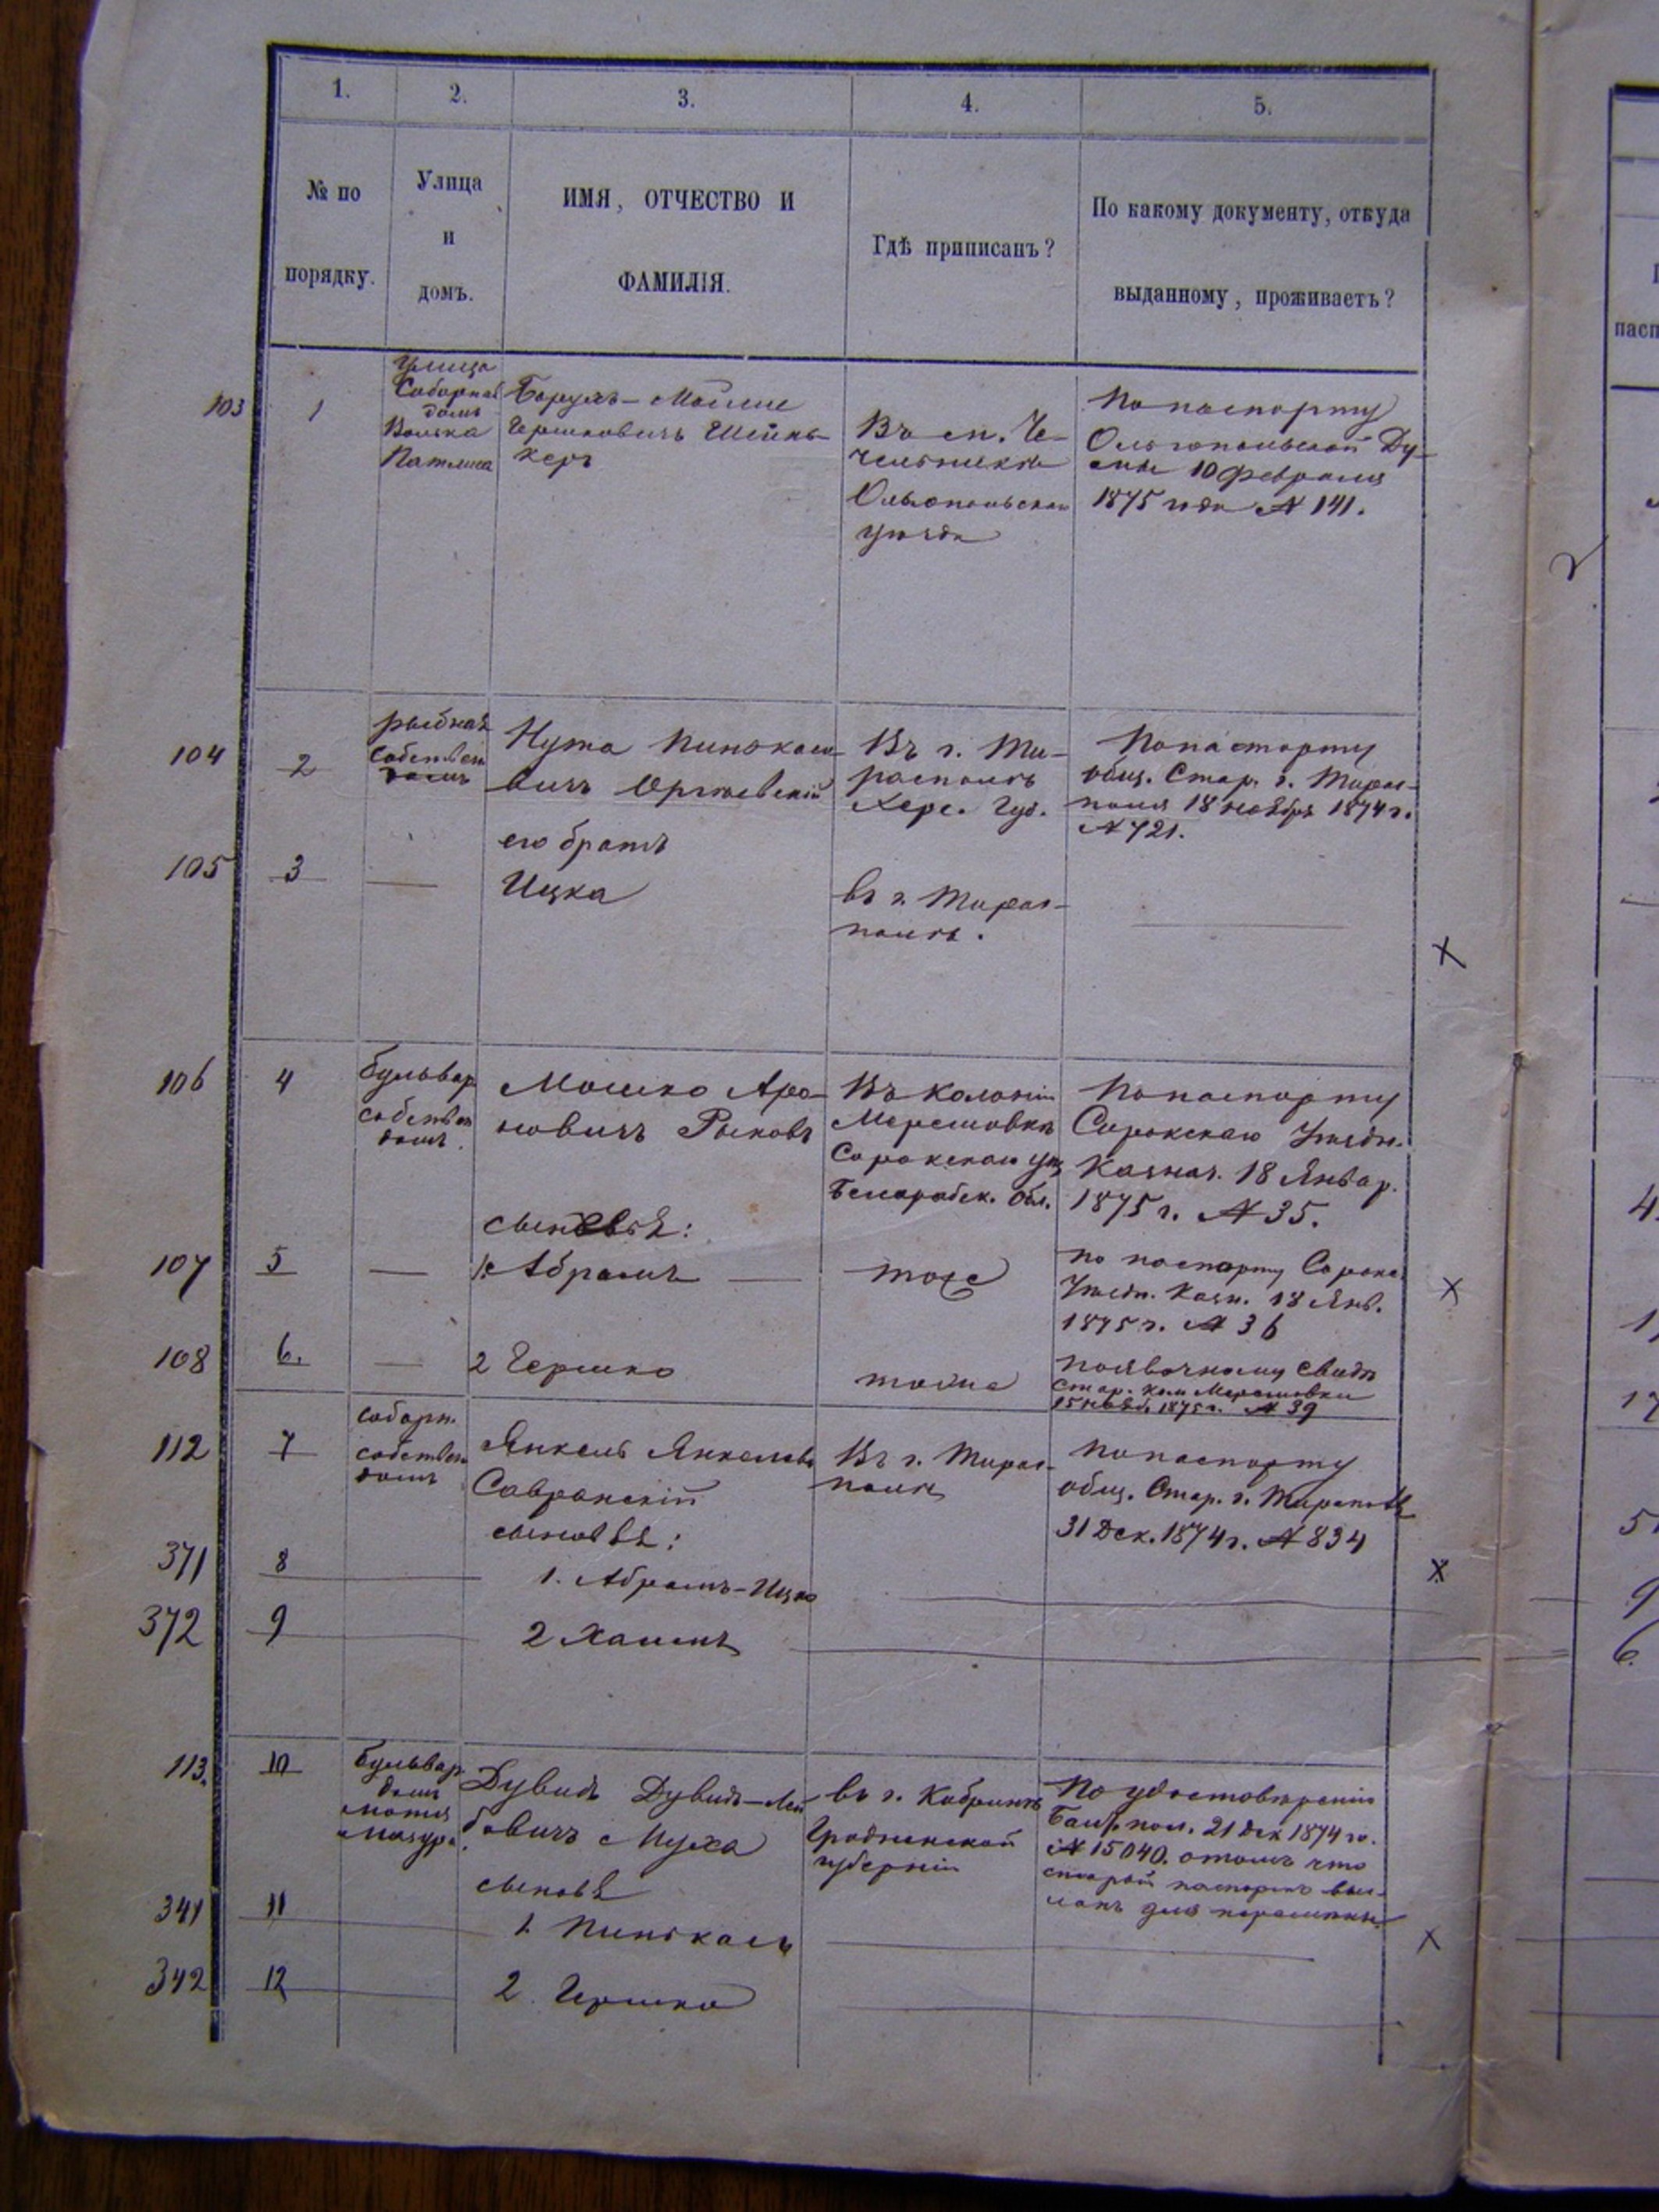 1.
2.
3.
4.
5.
№ по
порядку.
Улица
и
домъ.
ИМЯ, ОТЧЕСТВО И
ФАМИЛІЯ.
Гдѣ приписанъ?
По какому документу, откуда
выданному, проживаетъ?
пасп
103
1
Улица
Соборная
домъ
Волька
Борухъ-Мойше
Гершковичъ Шейнь-
керъ
Въ м. Че-
чельникѣ
Ольгопольскаго
уѣзда
По паспорту
Ольгопольской Ду-
мы 10 февраля
1875 года № 141.
104
2
рыбная
собствен
домъ
Нута Пинхасо-
вичъ Оржевскій
Въ г. Ти-
располѣ
Херс. Губ.
По паспорту
общ. Стар. г. Тирас-
поля 18 ноября 1874 г.
№ 721.
105
3
его братъ
Ицка
въ г. Тирас-
полѣ.
106
4
бульвар
собствен
домъ.
Мошко Аро-
новичъ Рыковъ
Въ колоніи
Мерешовкѣ
Сорокскаго уѣз
Бессарабск. Обл.
По паспорту
Сорокскаго Уѣздн.
Казнач. 18 Январ.
1875 г. № 35.
сыновья:
107
5
1. Абрамъ
тоже
по паспорту Сорокс.
Уѣздн. Казн. 18 Янв.
1875 г. № 36
108
6.
2 Гершко
тоже
По явочному свидѣ
Стар. кол Мерешовки
1875 г. № 39
112
7
соборн.
собствен
домъ
Янкель Янкелевъ
Савранскій
Въ г. Тирас-
полѣ
По паспорту
общ. Стар. г. Тирасполя
31 Дек. 1874 г. № 834
сыновья:
371
8
1. Абрамъ-Ицко
372
9
2 Хаимъ
113.
10
бульвар
домъ
Мотя
Мазура
Дувидъ Дувидъ-Лей
бовичъ Муха
въ г. Кобринѣ
Гродненской
губерніи
По удостовѣренію
пол. 21 Дек 1874 го.
№ 15040. о томъ что
старый паспортъ выс-
ланъ для перемѣны.
сыновья
341
11
1. Пинхасъ
342
12
2. Гершко